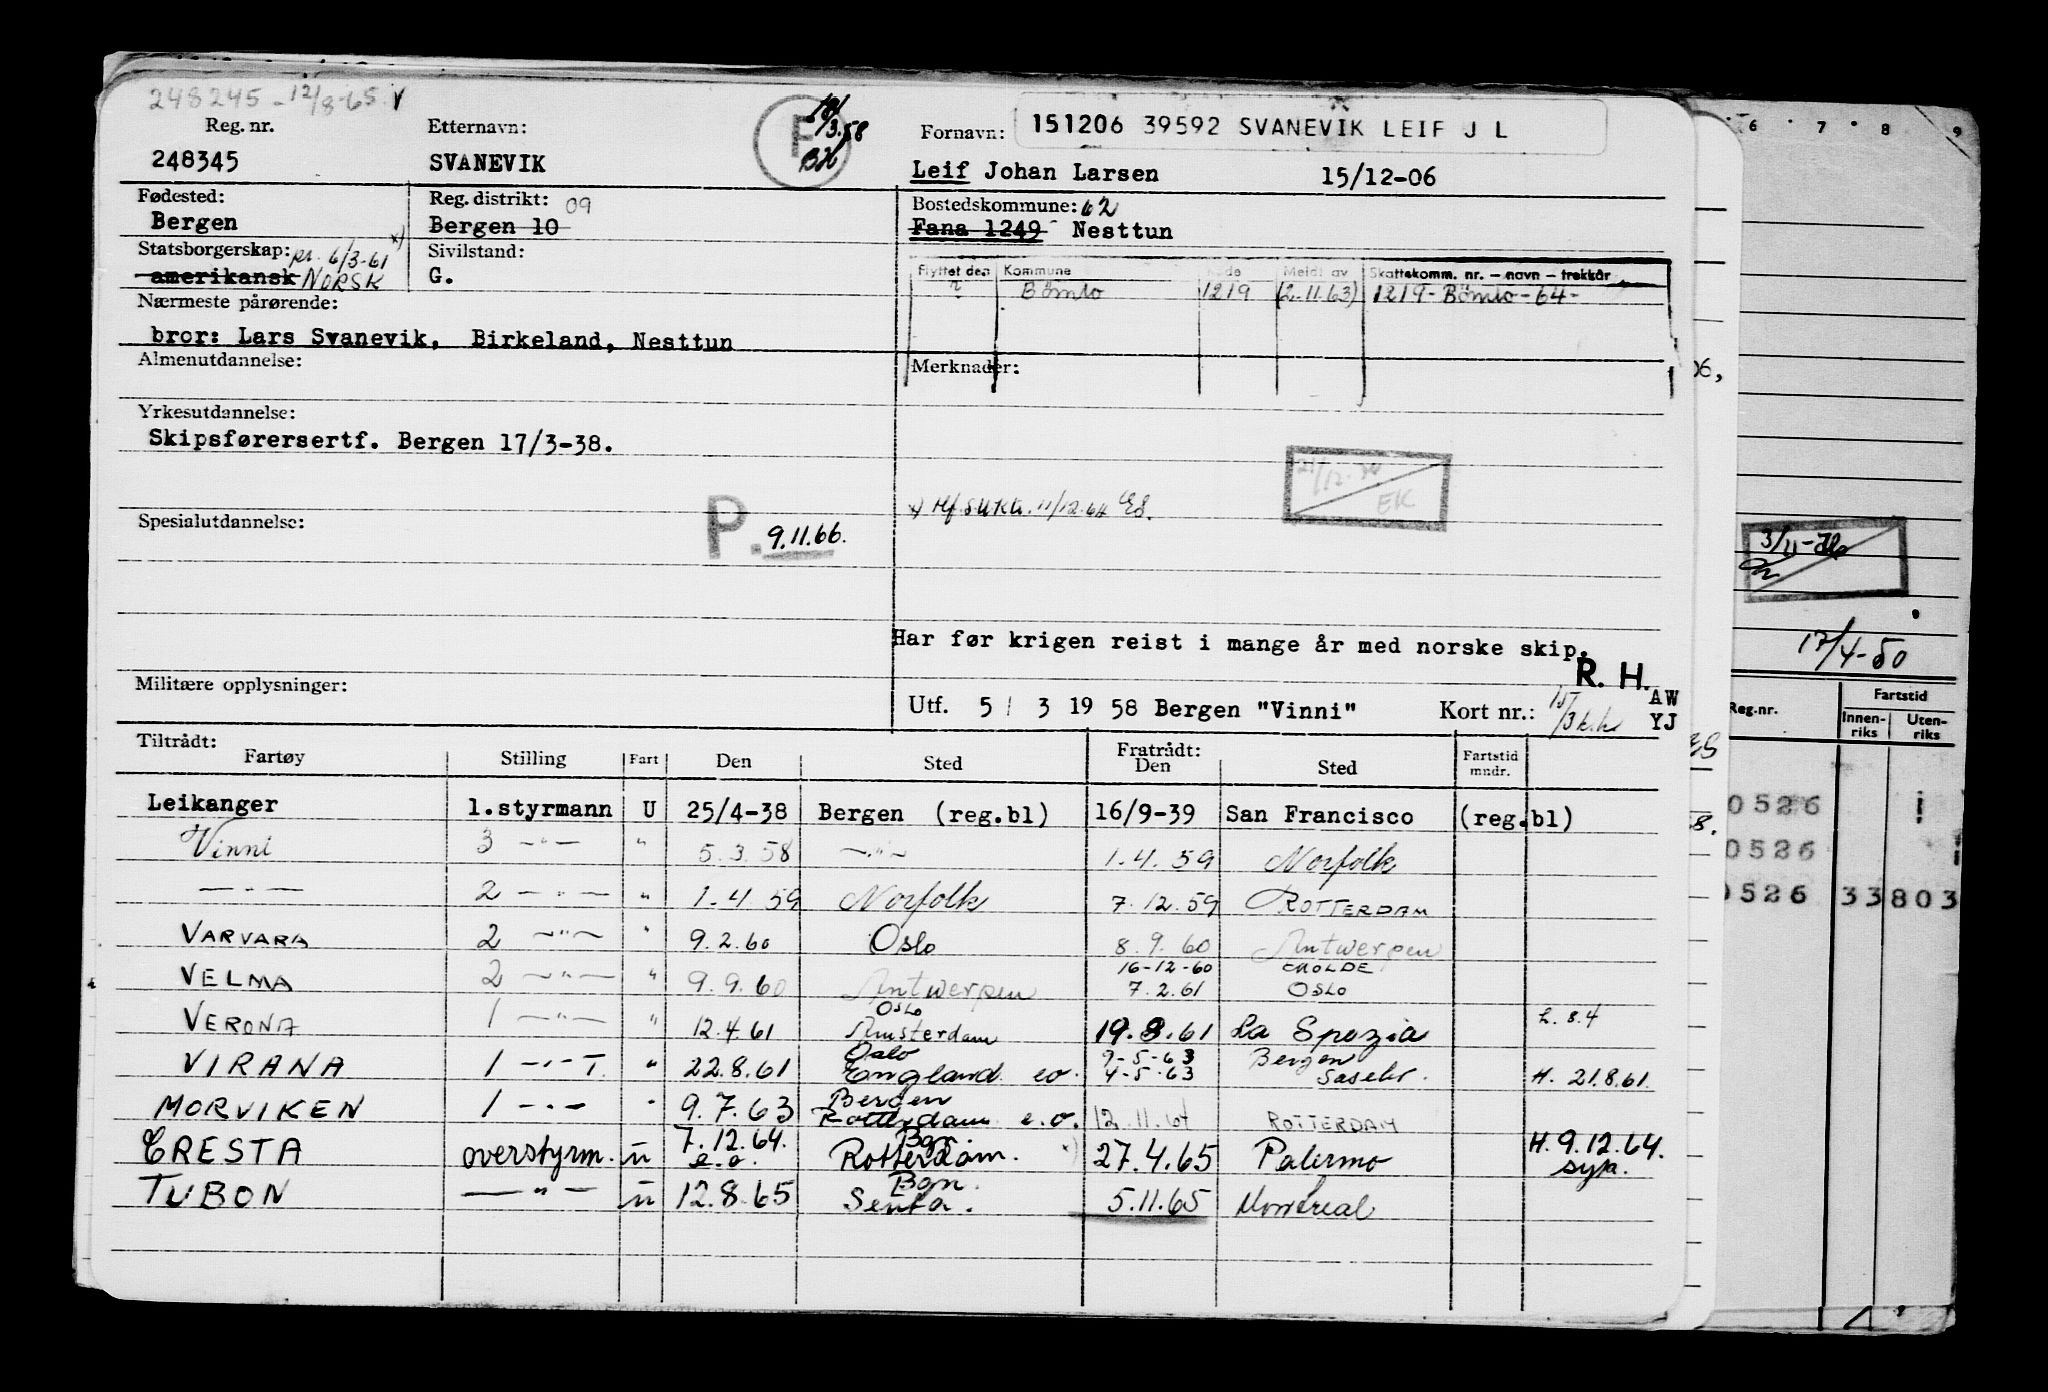 248245 - 12/8-65 V
Reg. nr.
248345
Etternavn:
SVANEVIK
F
3.58
Fornavn:
151206 39592 SVANEVIK LEIF J L
Leif Johan Larsen 15/12-06
Fødested:
Bergen
Reg. distrikt: 09
Bergen 10
Bostedskommune: 62
Fana 1249 Nesttun
Statsborgerskap: pr. 6/3-61 x)
amerikansk NORSK
Sivilstand:
G.
Flyttet den Kommune Kode Meldt av Skattekomm. nr. – navn – trekkår
? Bömlo 1219 (2.11.63) 1219 - Bömlo - 64 -
Nærmeste pårørende:
bror: Lars Svanevik, Birkeland, Nesttun
Almenutdannelse:
Merknader:
Yrkesutdannelse:
Skipsførersertf. Bergen 17/3-38.
EK
Spesialutdannelse:
P. 9.11.66.
11/12.64
Har før krigen reist i mange år med norske skip.
R. H.
Militære opplysninger:
Utf. 5/ 3 19 58 Bergen "Vinni" Kort nr.:
AW
YJ
Tiltrådt:
Fartøy Stilling Fart Den Sted Fratrådt: Den Sted Fartstid mndr.
Leikanger 1.styrmann U 25/4-38 Bergen (reg.bl) 16/9-39 San Francisco (reg.bl)
Vinni 3 — " — " 5.3.58 — " — 1.4.59 Norfolk
— " — 2 — " — " 1.4 59 Norfolk 7.12.59 ROTTERDAM
VARVARA 2 — " — " 9.2.60 Oslo 8.9.60 Antwerpen
VELMA 2 — " — " 9.9.60 Antwerpen 16-12-60 MOLDE
7.2.61 OSLO
VERONA 1 — " — " 12.4.61 Oslo
Amsterdam 19.8.61 La Spezia L. 8.4
VIRANA 1 — " — T. " 22.8.61 Oslo
England eo. 9-5-63 Bergen
4-5-63 Sasebo. H. 21.8.61
MORVIKEN 1 — " — " 9.7.63 Bergen
Rotterdam e.o. 12.11.64 ROTTERDAM
CRESTA overstyrm. u 7.12.64. e.o. Bgn
Rotterdam. x) 27.4.65 Palermo H. 9.12.64.
syk.
TUBON — " — u 12.8.65 Bgn.
5.11.65 Montreal
6 7 8 9
06,
3/11-
17/4-50
Reg.nr. Fartstid
Innen-
riks
Uten-
riks
0526
0526
0526 33803